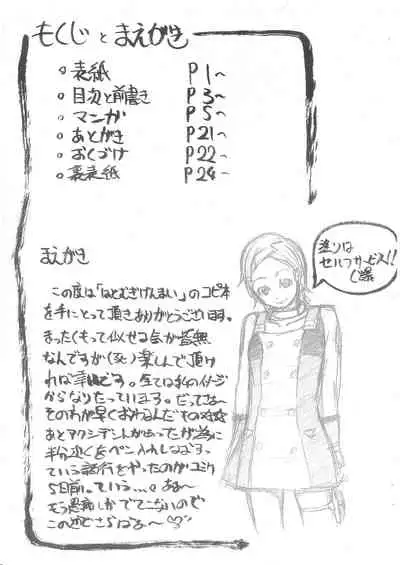 もくじ と まえがき
。表紙 P1〜
。目次と前書き P3〜
。マンガ P5〜
。あとがき P21〜
。おくづけ P22〜
。裏表紙 P24〜
塗りは
セルフサービス!!
まえがき
この度は「はとむぎげんまい」のコピ本
を手にとって頂きありがとうございます。
まったくもって似せる気が皆無
なんですが(死)楽しんで頂け
れば幸いです。全ては私のイメージ
からなりたっています。だってさ〜
あとアクシデントがあったが為に
ていう
5日前。ていう…。あぁ〜
もう愚痴しかでてこないので
この辺でさらばな〜♡